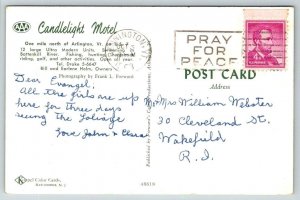 AAA
Candlelight Motel
One mile north of Arlington, Vt. on U.S. 7
12 large Ultra Modern Units, Between
Battenkill River. Fishing, hunting,
riding, golf, and other activities. Open all
Tel. Drake 5-6647
Bill and Barbara Holm, Owners
Photography by Frank L. Forward
PRAY
FOR
PEACE
POST CARD
Address
Dear Evangel.
All three girls are up
here for three days
seeing the foliage
Love John & Clara
Mr Mrs William Webster
30 Cleveland St.
Wakefield
R.I.
Kardel Color Cards.